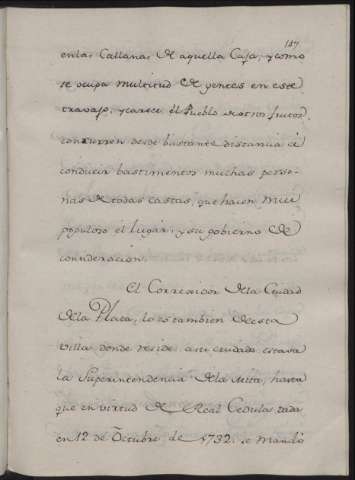 147
en las Callanas de aquella Casa, y como
se ocupa multitud de gentes en este
travajo, y carece el Pueblo de otros frutos,
concurren desde bastante distancia á
conducir bastimentos muchas perso-
nas de todas castas, que hacen mui
populoso el lugar, y su govierno de
consideracion.
El Corregidor de la Ciudad
de la Plata, lo es tambien de esta
villa donde reside. a su cuidado estava
la Superintendencia de la Mita, hasta
que en virtud de Real Cedula dada
en 12 de Octubre de 1732. se mandó